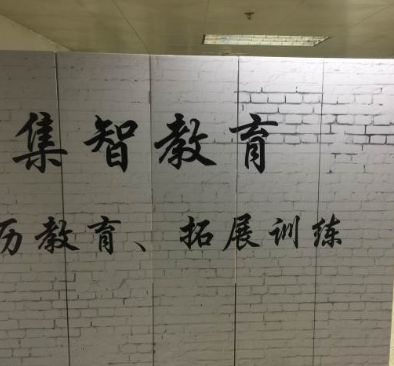 集智教育
历教育、拓展训练